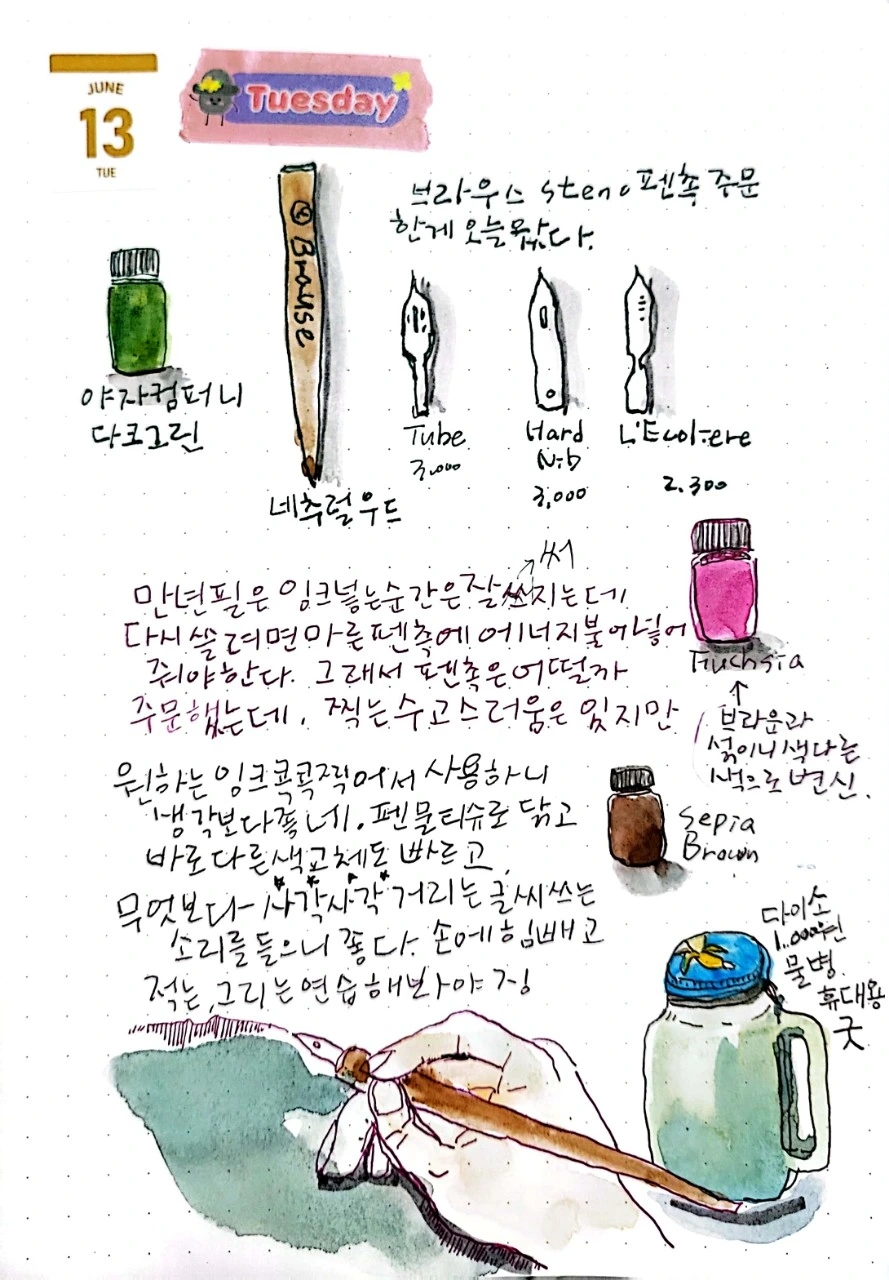 JUNE
13
TUE
Tuesday
브라우스 steno 펜촉 주문
한게 오늘 왔다.
Brause
야자컴퍼니
다크그린
네추럴우드
Tube
3,000
Hard
Nib
3,000
L'Ecoliere
2.300
써
만년필은 잉크넣는순간은 잘 쓰지는데
다시 쓸려면 마른펜촉에 에너지불어넣어
줘야한다. 그래서 펜촉은 어떨까
주문했는데, 찍는수고스러움은 있지만
Fuchsia
브라운과
섞이니 색다른
색으로 변신.
원하는 잉크콕콕찍어서 사용하니
생각보다좋네. 펜물티슈로 닦고
바로다른색교체도 빠르고,
Sepia
Brown
무엇보다 사각사각 거리는 글씨쓰는
소리를 들으니 좋다. 손에힘빼고
적는, 그리는연습해봐야징
다이소
1,000원
물병.
휴대용
굿